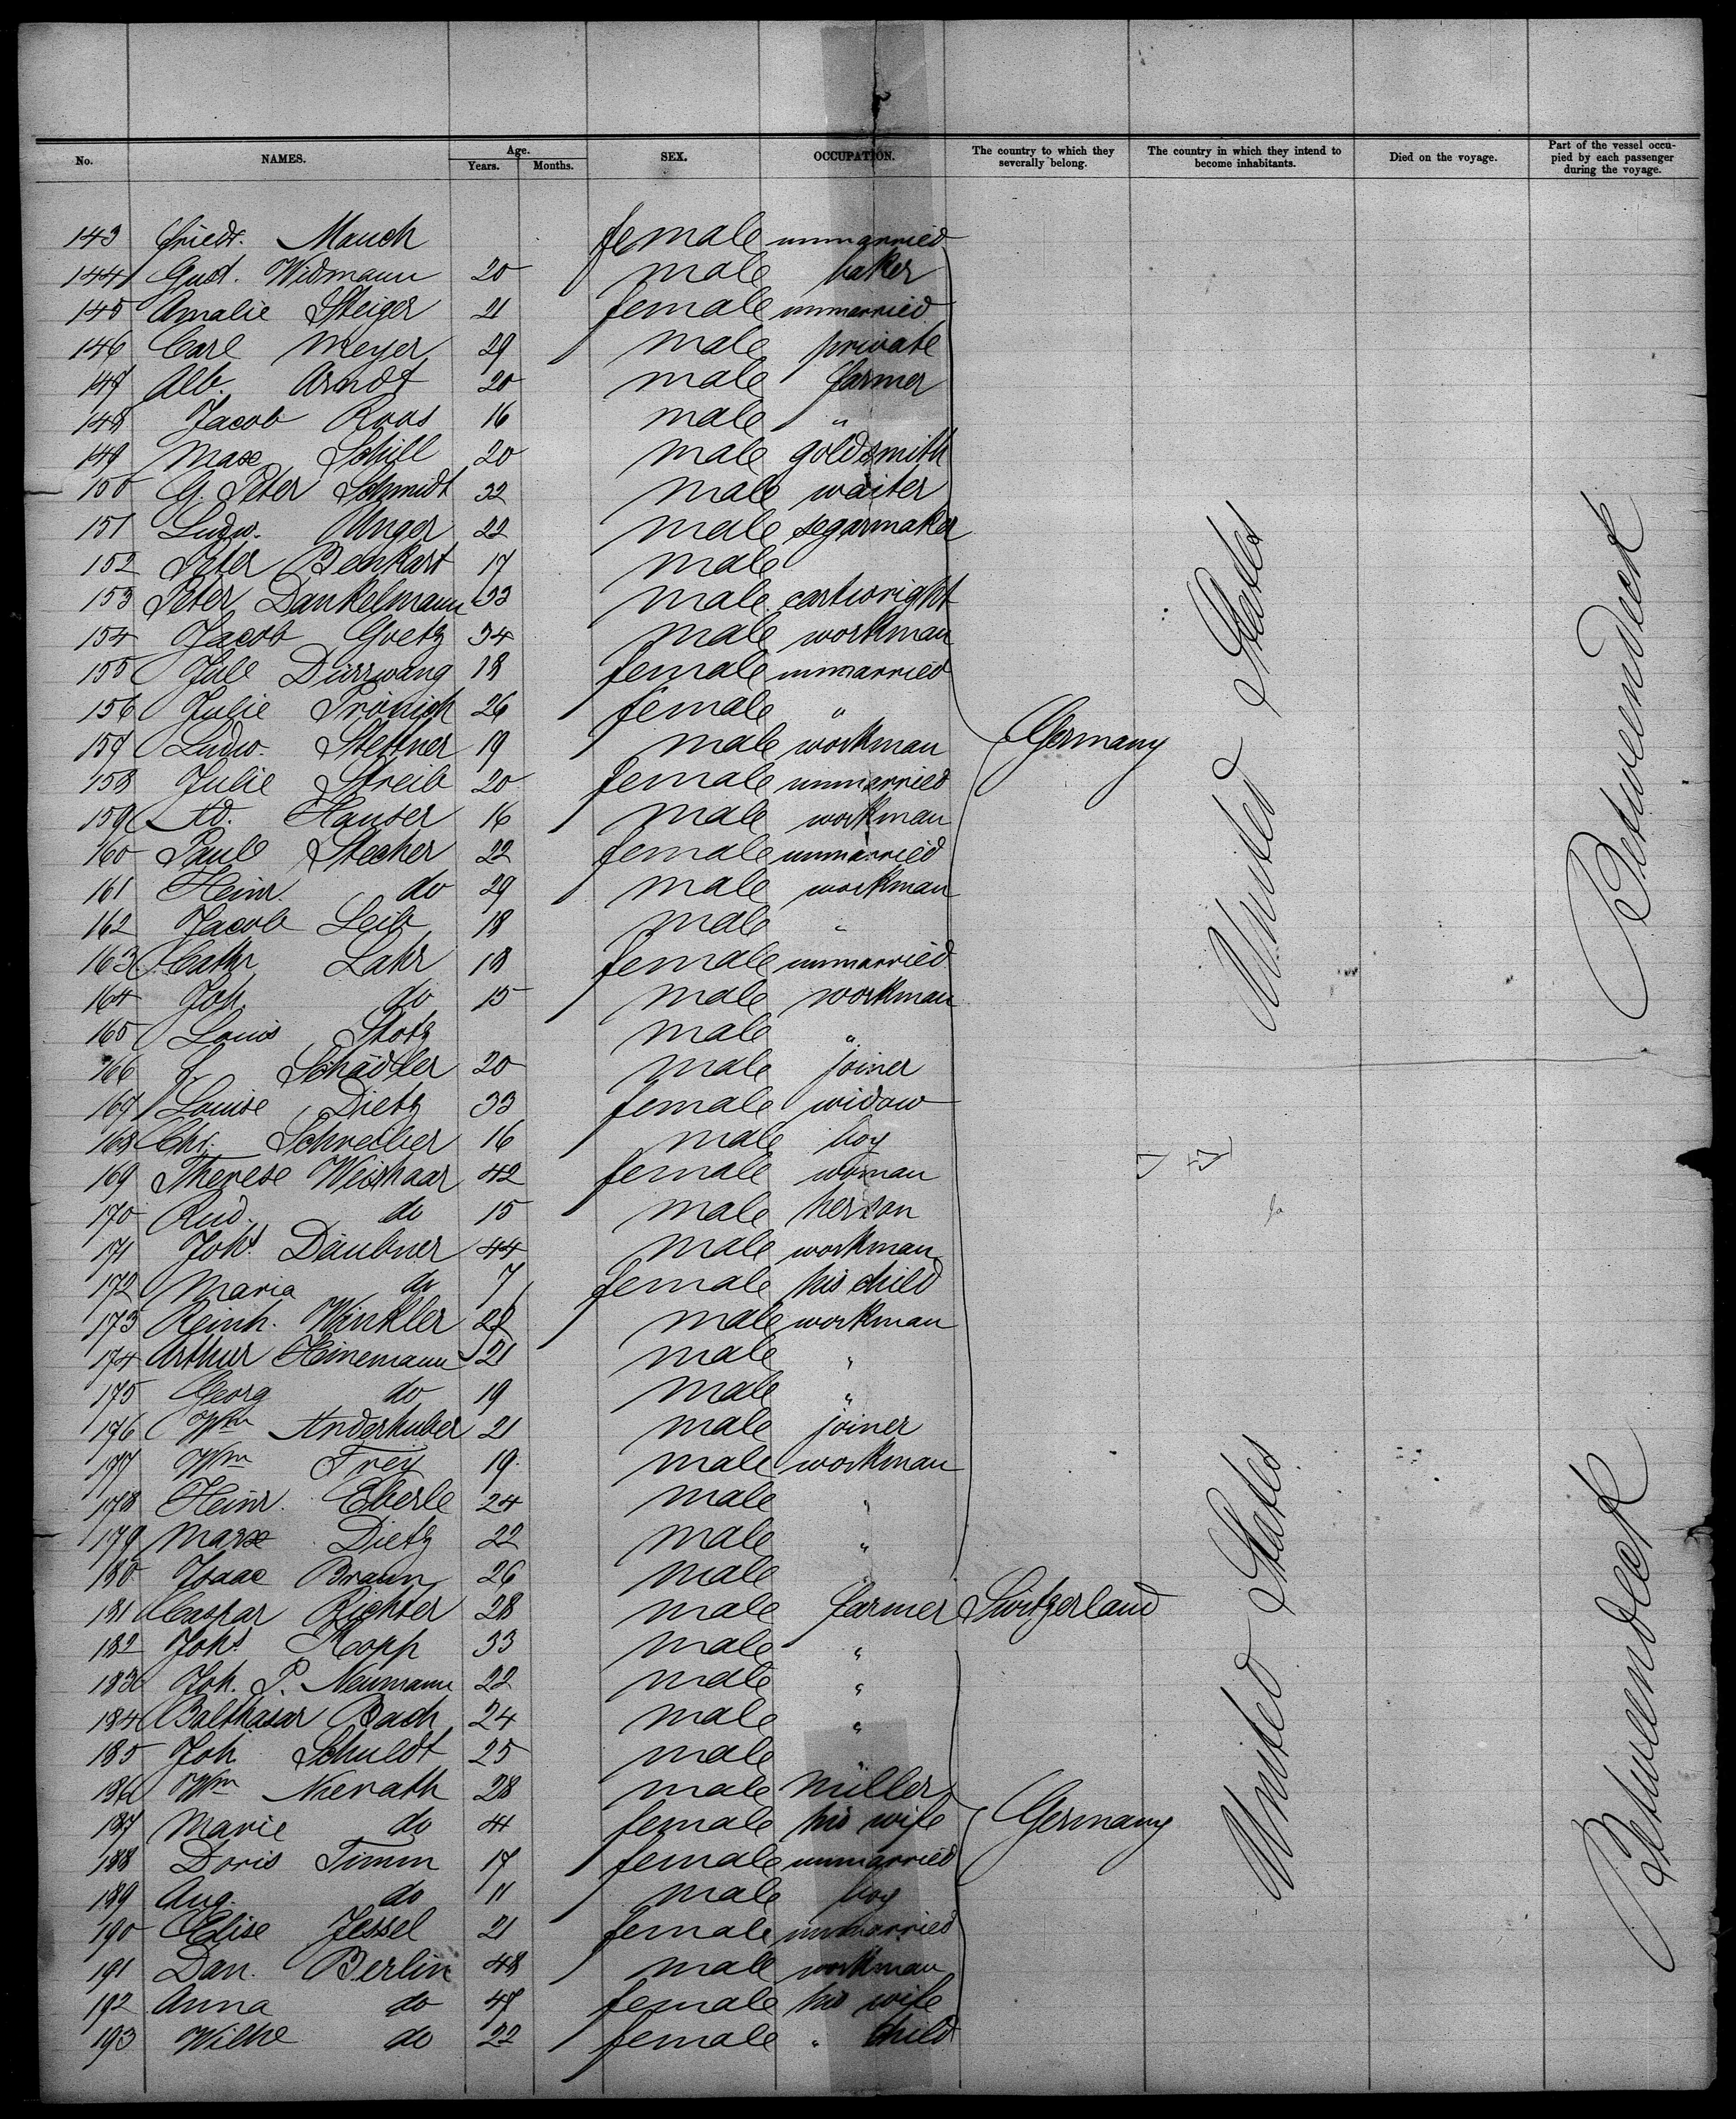 No. NAMES. Age. Years. Months. SEX. OCCUPATION. The country to which they severally belong. The country in which they intend to become inhabitants. Died on the voyage. Part of the vessel occupied by each passenger during the voyage.
143 Friedr. Mauch female unmarried
144 Gust. Widmann 20 male baker
145 Amalie Steiger 21 female unmarried
146 Carl Meyer 29 male private
147 Alb. Arndt 20 male farmer
148 Jacob Roos 16 male "
149 Max Schill 20 male goldsmith
150 G. Peter Schmidt 32 male waiter
151 Ludw. Unger 22 male segarmaker
152 Peter Benkart 17 male
153 Peter Dankelmann 33 male cartwright
154 Jacob Goetz 34 male workman
155 Jule Dürrwang 18 female unmarried
156 Julie 26 female "
157 Ludw. Stettner 19 male workman Germany
158 Julie Streib 20 female unmarried
159 Ad. Hauser 16 male workman
160 Paul Stecher 22 female unmarried
161 Heinr. do 29 male workman
162 Jacob Leib 18 male "
163 Cathr Lahr 18 female unmarried
164 Joh. do 15 male workman
165 Louis Stotz male "
166 J. Schädler 20 male joiner
167 Louise Dietz 33 female widow
168 Chr. Schreiber 16 male boy
169 Therese Weishaar 42 female woman
170 Rud. do 15 male her son
171 Johs Däubner 44 male workman
172 Maria do 7 female his child
173 Reinh. Winkler male workman
174 Arthur Heinemann 21 male "
175 Georg do 19 male "
176 Wm Anderhuber 21 male joiner
177 Wm Frey 19 male workman
178 Heinr. Eberle 24 male "
179 Marx Dietz 22 male "
180 Isaac Braun 26 male "
181 Caspar Richter 28 male farmer Switzerland
182 Johs Kopp 33 male "
183 Joh. P. Neumann 22 male "
184 Balthasar Bach 24 male "
185 Joh. Schuldt 25 male "
186 Wm Nierath 28 male miller
187 Marie do female his wife Germany
188 Doris Timm 17 female unmarried
189 Aug. do 11 male boy
190 Elise Jessel 21 female unmarried
191 Dan. Berlin 48 male workman
192 Anna do 47 female his wife
193 Wilhe do 22 female " child
United States
United States
Betweendeck
Betweendeck